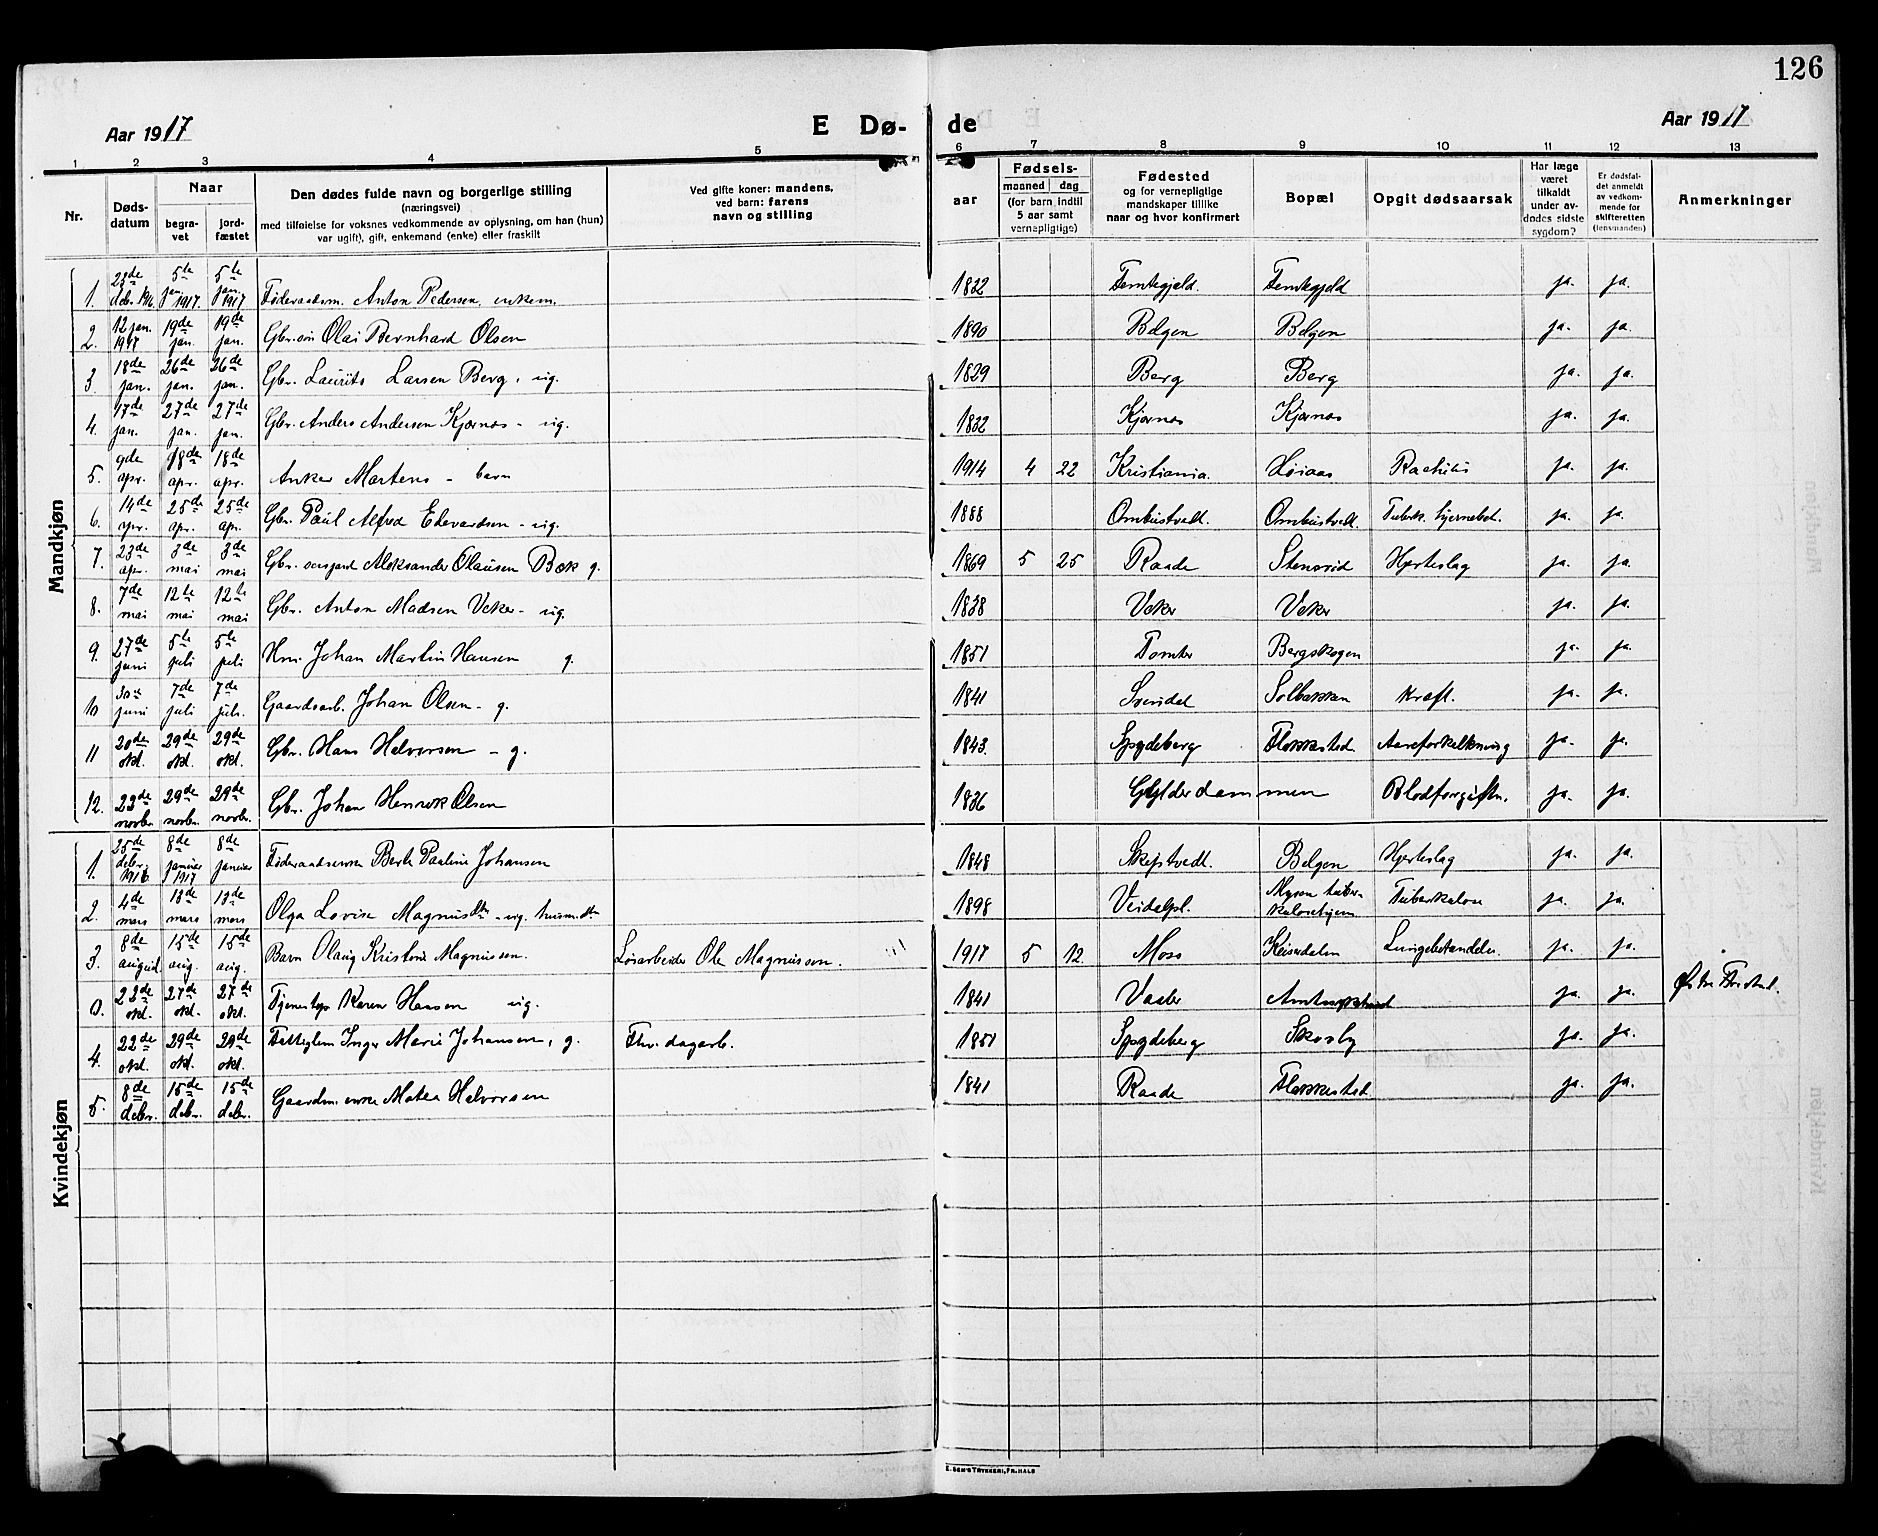 126
Aar 1917
E Dø-
de
Aar 1917
1 2 3 4 5 6 7 8 9 10 11 12 13
Nr.
Døds-
datum
Naar
begra-
vet
jord-
fæstet
Den dødes fulde navn og borgerlige stilling
(næringsvei)
med tilføielse for voksnes vedkommende av oplysning, om han (hun)
var ugift), gift, enkemand (enke) eller fraskilt
Ved gifte koner: mandens,
ved barn: farens
navn og stilling
aar
Fødsels-
maaned dag
(for barn indtil
5 aar samt
vernepligtige)
Fødested
og for vernepligtige
mandskaper tillike
naar og hvor konfirmert
Bopæl
Opgit dødsaarsak
Har læge
været
tilkaldt
under av-
dødes sidste
sygdom?
Er dødsfal-
det anmeldt
av vedkom-
mende for
skifteretten
(lensmanden)
Anmerkninger
Mandkjøn
1. 23de debr. 1916. 5te jan. 1917. 5te jan. 1917 Føderaadsm. Anton Pedersen, enkem. 1832 Temtegjeld Temtegjeld ja. ja.
2. 12 jan. 1917 19de jan. 19de jan. Gbr.søn Olai Bernhard Olsen 1890 Bølgen Bølgen ja. ja.
3. 18de jan. 26de jan. 26de jan. Gbr. Laurits Larsen Berg, ug. 1829 Berg Berg ja. ja.
4. 17de jan. 27de jan. 27de jan. Gbr. Anders Andersen Kjærnes - ug. 1832 Kjærnes Kjærnes ja. ja.
5. 9de apr. 18de apr. 18de apr. Anker Martens - barn 1914 4 22 Kristiania. Høiaas Rachitis ja. ja.
6. 14de apr. 25de apr. 25de apr. Gbr. Paul Alfred Edevardsen - ug. 1888 Ombustvedt. Ombustvedt. Tuberk. hjernebet. ja. ja.
7. 23de apr. 3de mai 3de mai Gbr. Aleksander Olausen Bøk g. 1869 5 25 Raade Stensrud Hjerteslag ja. ja.
8. 7de mai 12te mai 12te mai Gbr. Anton Madsen Veker - ug. 1838 Veker Veker ja. ja.
9. 27de juni 5te juli 5te juli Hm. Johan Martin Hansen g. 1851 Tomter Bergskogen ja. ja.
10 30te juni 7de juli 7de juli. Gaardsarb. Johan Olsen - g. 1841 Svindal Solbakken Kræft. ja. ja.
11 20de okt. 29de okt. 29de okt. Gbr. Hans Halvorsen - g. 1843. Spydeberg Flokkestad. Aareforkalkning ja. ja.
12. 23de novbr. 29de novbr. 29de novbr. Gbr. Johan Henrik Olsen 1836 Gylderdammen Blodforgiftn. ja. ja.
Kvindekjøn
1. 25de debr. 1916 8de januar 1917 8de januar Føderaadsenke Berte Pauline Johansen 1848 Skiptvedt. Bølgen Hjerteslag ja. ja.
2. 4de mars 13de mars 13de mars Olga Lovise Magnusdtr - ug. husm.dtr. 1898 Veidalpl. Mysen tuber-kulosehjem Tuberkulose ja. ja.
3. 8de august 15de aug. 15de aug. Barn Olaug Kristine Magnussen. Løsarbeider Ole Magnussen. 1917 5 12. Moss Keiserdalen Lungebetændelse. ja. ja.
0. 22de okt. 27de okt. 27de okt. Tjenestep. Karen Hansen ug. 1841 Vaaler ja. ja.
4. 22de okt. 29de okt. 29de okt. Fattiglem Inger Marie Johansen, g. Fhv. dagarb. 1851 Spydeberg Skovby ja. ja.
5. 8de debr. 15de debr. 15de debr. Gaardm.enke Matea Halvorsen 1841 Raade Flokkestad. ja. ja.
E. SEM'S TRYKKERI, FR.HALD